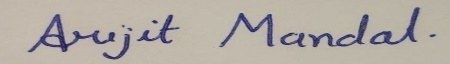 Arijit Mandal.